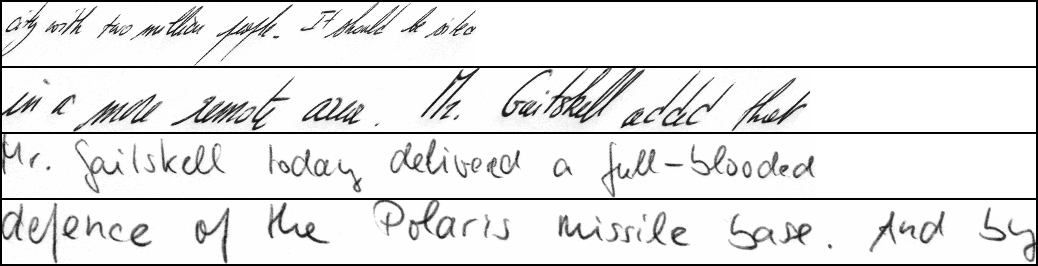 city with two million people. It should be sited
in a more remote area. Mr. Gaitskell added that
Mr. Gaitskell today delivered a full-blooded
defence of the Polaris missile base. And by